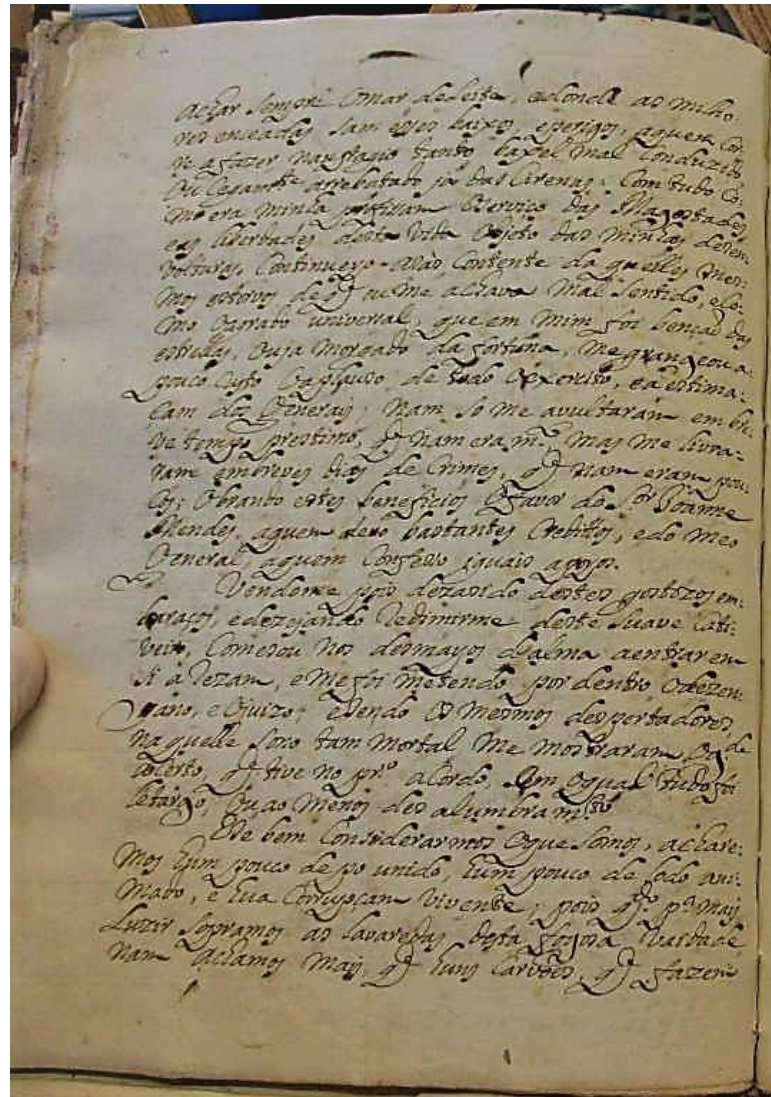 achar sempre o mar de leite, e donde as milho-
res enceadas sam esses baixos, e perigos, a quem cor-
re a fazer naufragio tanto baxel mal conduzido
ou cegamte arrebatado já das cirenas. Com tudo co-
mo era minha profissam o serviço das Magestades
e as libertades desta vida objeto das minhas desen-
volturas, continuey-as tão contente da quelles mes-
mos estorvos de q̃ eu me achava mal sentido, e co-
mo o agrado universal, que em mim foi bençaõ das
estrellas, ou ja morgado da fortuna, me grangeou a
pouco custo o aplauso de todo o exercito, e a estima-
çam dos Generais; nam so me avultaram em bre-
ve tempo prestimo, q̃ nam era m.to, mas me livra-
ram em breves dias de crimes, q̃ nam eram pou-
cos; obrando estes beneficios o favor do S.or Joanne
Mendes, a quem devo bastantes creditos, e do meo
General, a quem confesso iguais apoyos.
Vendome pois dezasido destes gostozos em-
baraços, e dezejando redimirme deste suave cati-
veiro, comesou nos desmayos d'alma a entrar em
si a rezam, e me foi metendo por dentro o dezen-
gano, e o juizo; e sendo os mesmos despertadores
na quelle sono tam mortal me mostraram o q̃ de
acerto, q̃ tive no pr.o acordo, em o qual tudo foi
letargo, ou ao menos des alumbram.to
E se bem considerarmos o que somos, achare-
mos hum pouco de po unido, hum pouco de lodo ani-
mado, e hũa corrupçam vivente; pois q.do p.a mais
Luzir sopramos as lavaredas desta fogosa vaidade
nam achamos mais, q̃ huns carvões, q̃ fazem